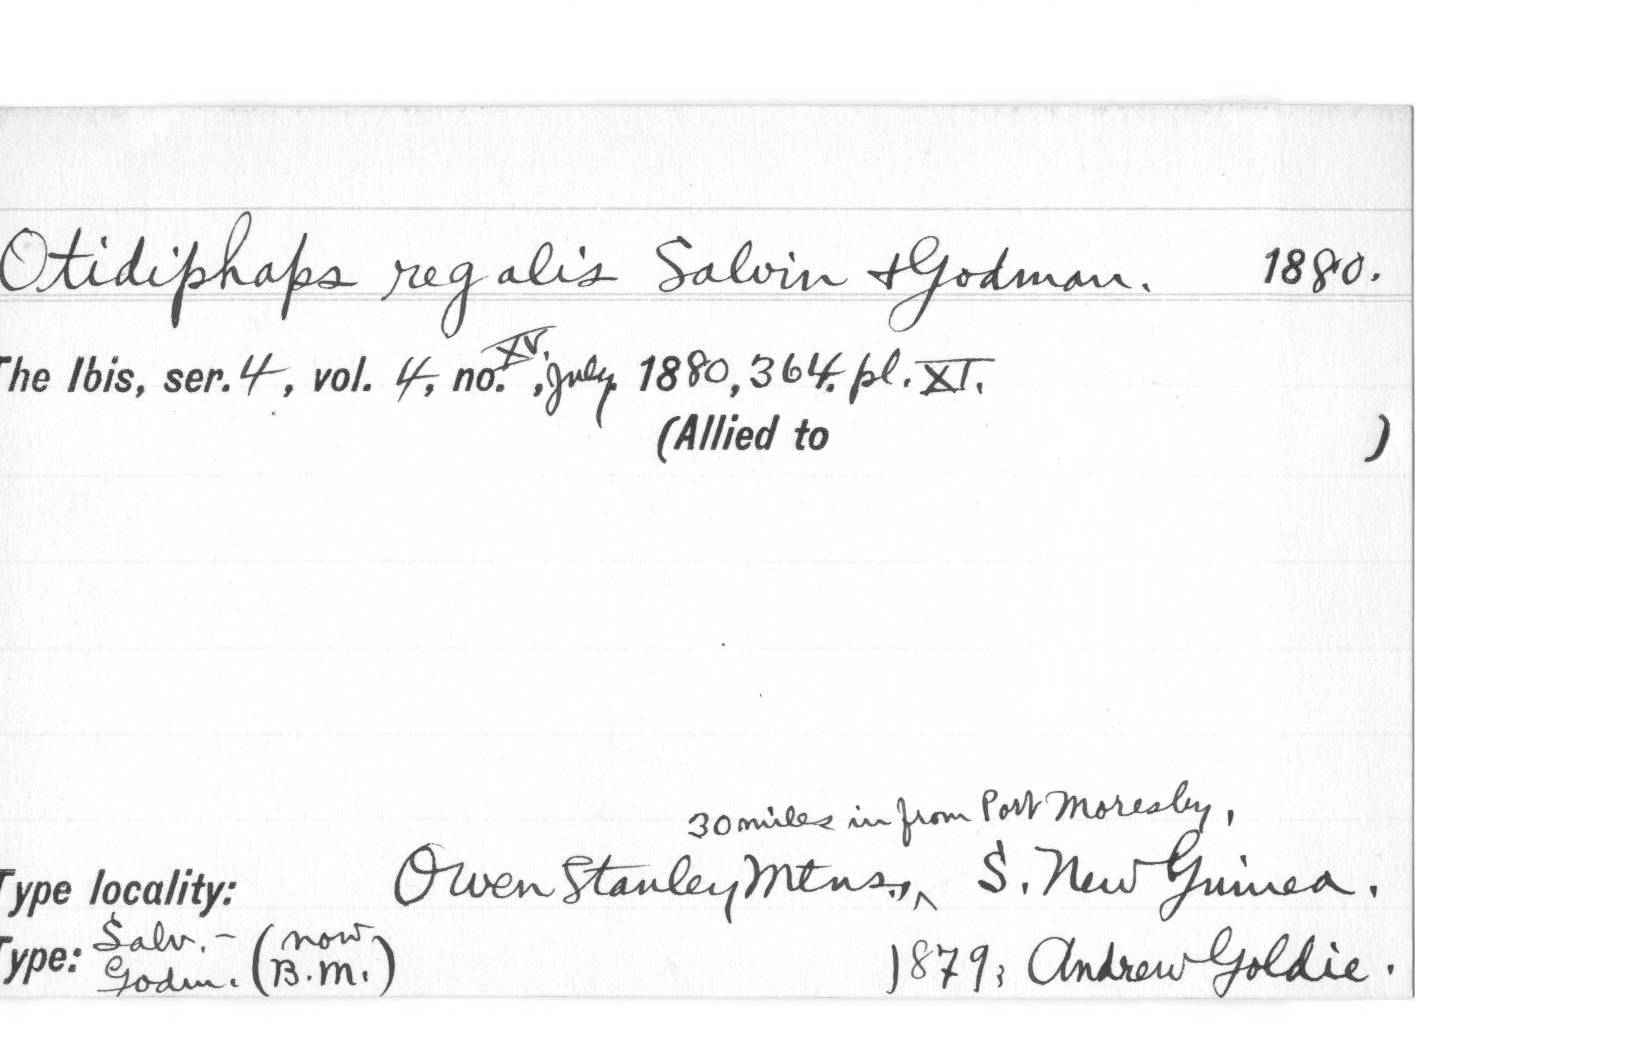 Otidiphaps regalis Salvin & Godman. 1880.
The Ibis, ser. 4, vol. 4, no. XV, July 1880, 364. pl. XI.
(Allied to )
30 miles in from Port Moresby,
Type locality: Owen Stanley Mtns., ^ S. New Guinea.
Type: Salv.- Godm. (now B.M.) 1879; Andrew Goldie.